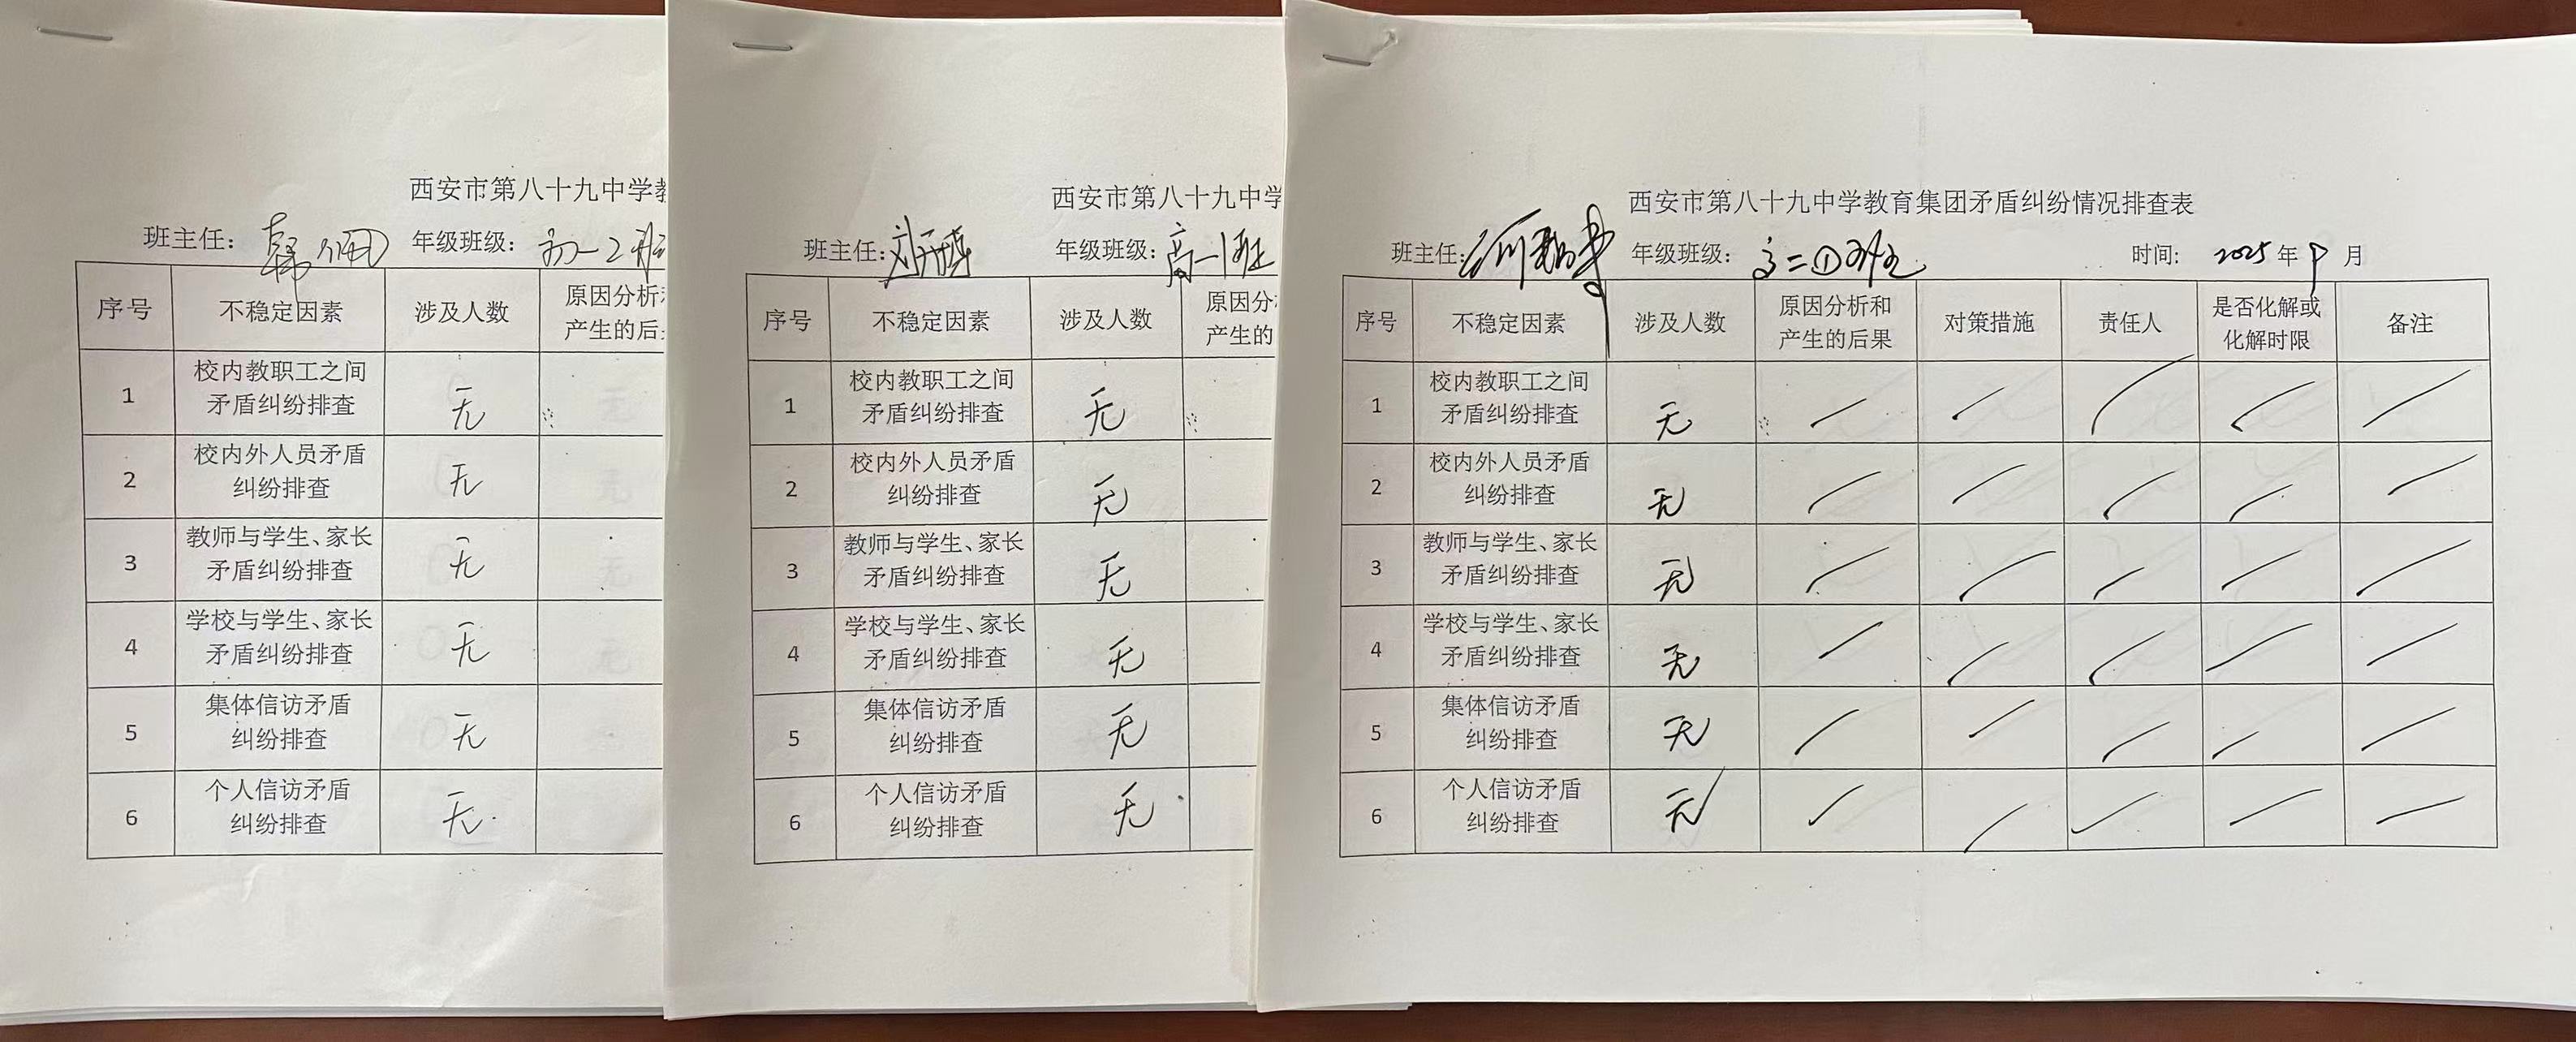 西安市第八十九中学教
班主任： 年级班级：初一2班
序号 不稳定因素 涉及人数 原因分析
产生的后
1 校内教职工之间
矛盾纠纷排查 无
2 校内外人员矛盾
纠纷排查 无
3 教师与学生、家长
矛盾纠纷排查 无
4 学校与学生、家长
矛盾纠纷排查 无
5 集体信访矛盾
纠纷排查 无
6 个人信访矛盾
纠纷排查 无
西安市第八十九中学
班主任： 年级班级：高一1班
序号 不稳定因素 涉及人数 原因分
产生的
1 校内教职工之间
矛盾纠纷排查 无
2 校内外人员矛盾
纠纷排查 无
3 教师与学生、家长
矛盾纠纷排查 无
4 学校与学生、家长
矛盾纠纷排查 无
5 集体信访矛盾
纠纷排查 无
6 个人信访矛盾
纠纷排查 无
西安市第八十九中学教育集团矛盾纠纷情况排查表
班主任： 年级班级：高二①班 时间：2025年9月
序号 不稳定因素 涉及人数 原因分析和
产生的后果 对策措施 责任人 是否化解或
化解时限 备注
1 校内教职工之间
矛盾纠纷排查 无
2 校内外人员矛盾
纠纷排查 无
3 教师与学生、家长
矛盾纠纷排查 无
4 学校与学生、家长
矛盾纠纷排查 无
5 集体信访矛盾
纠纷排查 无
6 个人信访矛盾
纠纷排查 无